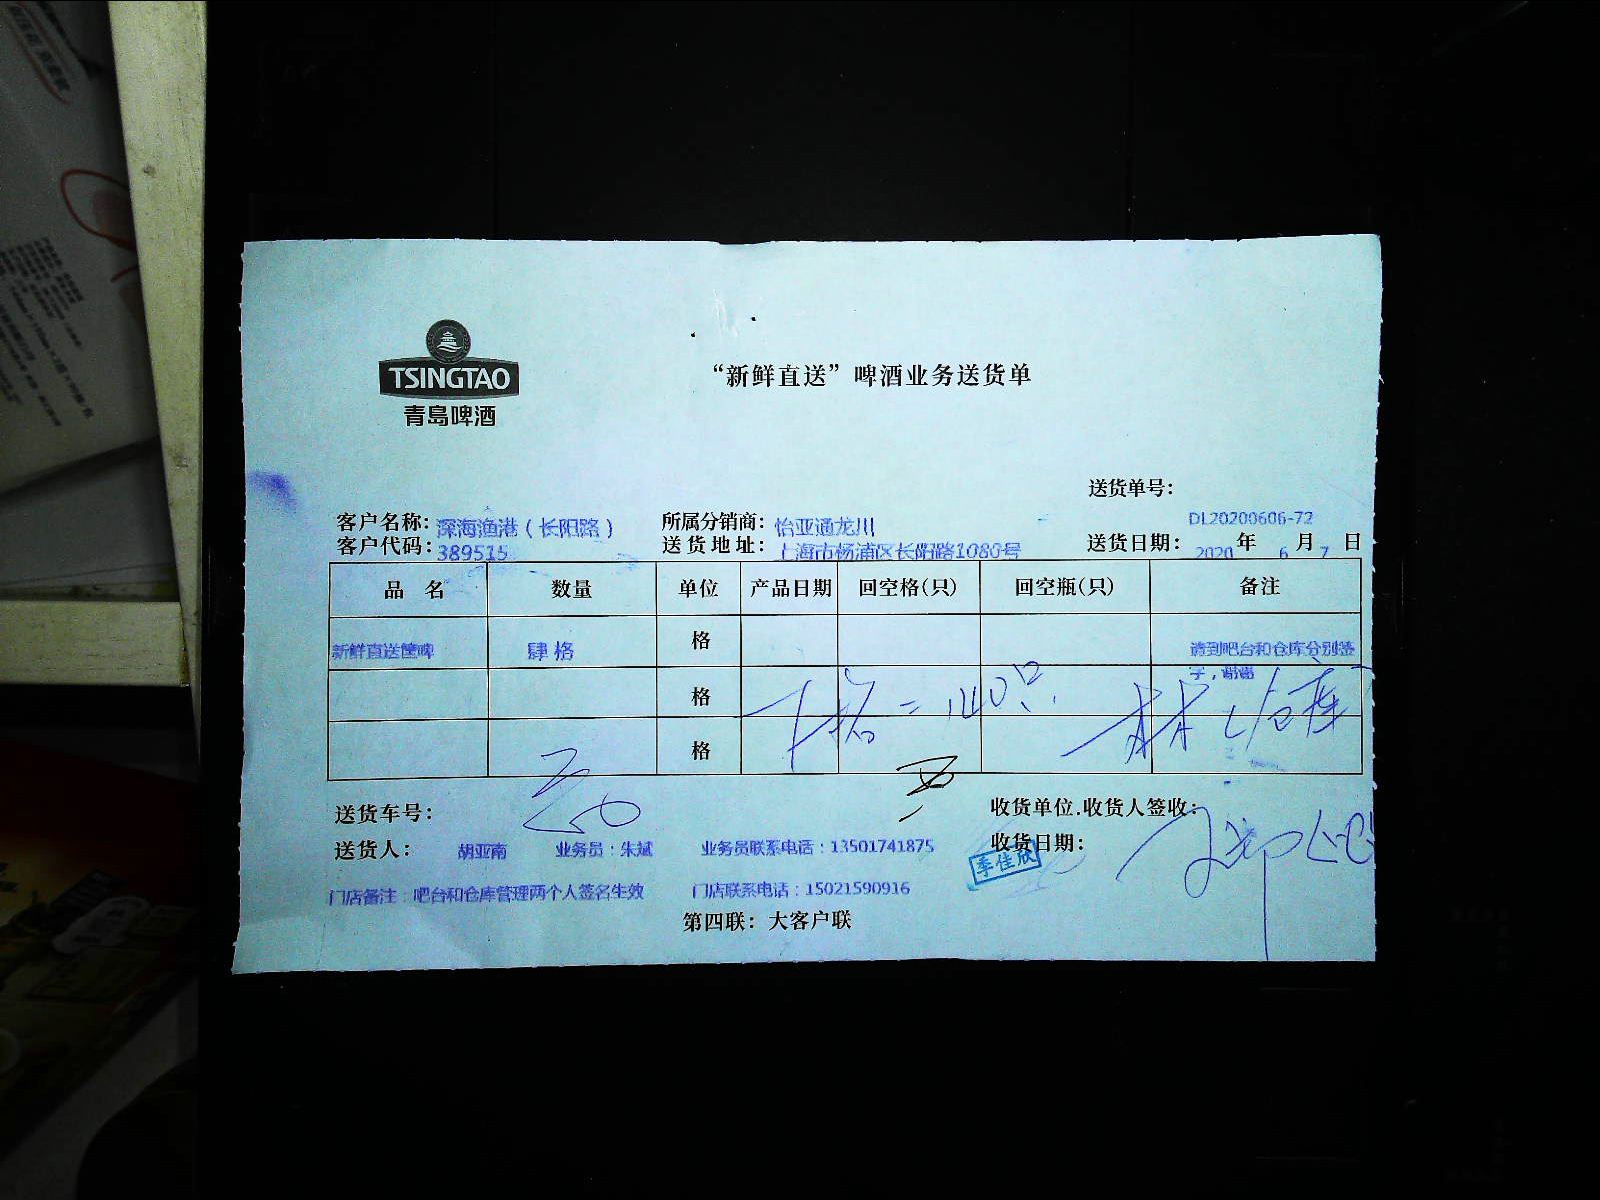 TSINGTAO
青島啤酒
“新鲜直送”啤酒业务送货单
送货单号：
DL20200606-72
客户名称：深海渔港（长阳路） 所属分销商：怡亚通龙川
客户代码：389515 送货地址：上海市杨浦区长阳路1080号 送货日期：2020年6月7日
品名 数量 单位 产品日期 回空格(只) 回空瓶(只) 备注
新鲜直送筐啤 肆格 格 请到吧台和仓库分别签
字，谢谢
格
格
仓库
送货车号： 收货单位.收货人签收：
送货人： 胡亚南 业务员：朱斌 业务员联系电话：13501741875 收货日期：
李佳欣
门店备注：吧台和仓库管理两个人签名生效 门店联系电话：15021590916
第四联：大客户联